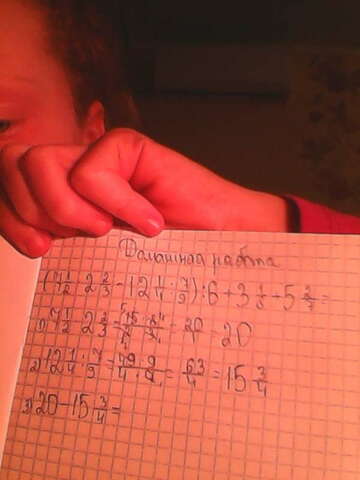 Домашная работа
(7 1/2 · 2 2/3 - 12 1/4 : 7/9) : 6 + 3 1/3 · 5 2/7 =
1) 7 1/2 · 2 2/3 = 20
2) 12 1/4 : 7/9 = 49/4 · 9/7 = 63/4 = 15 3/4
3) 20 - 15 3/4 =